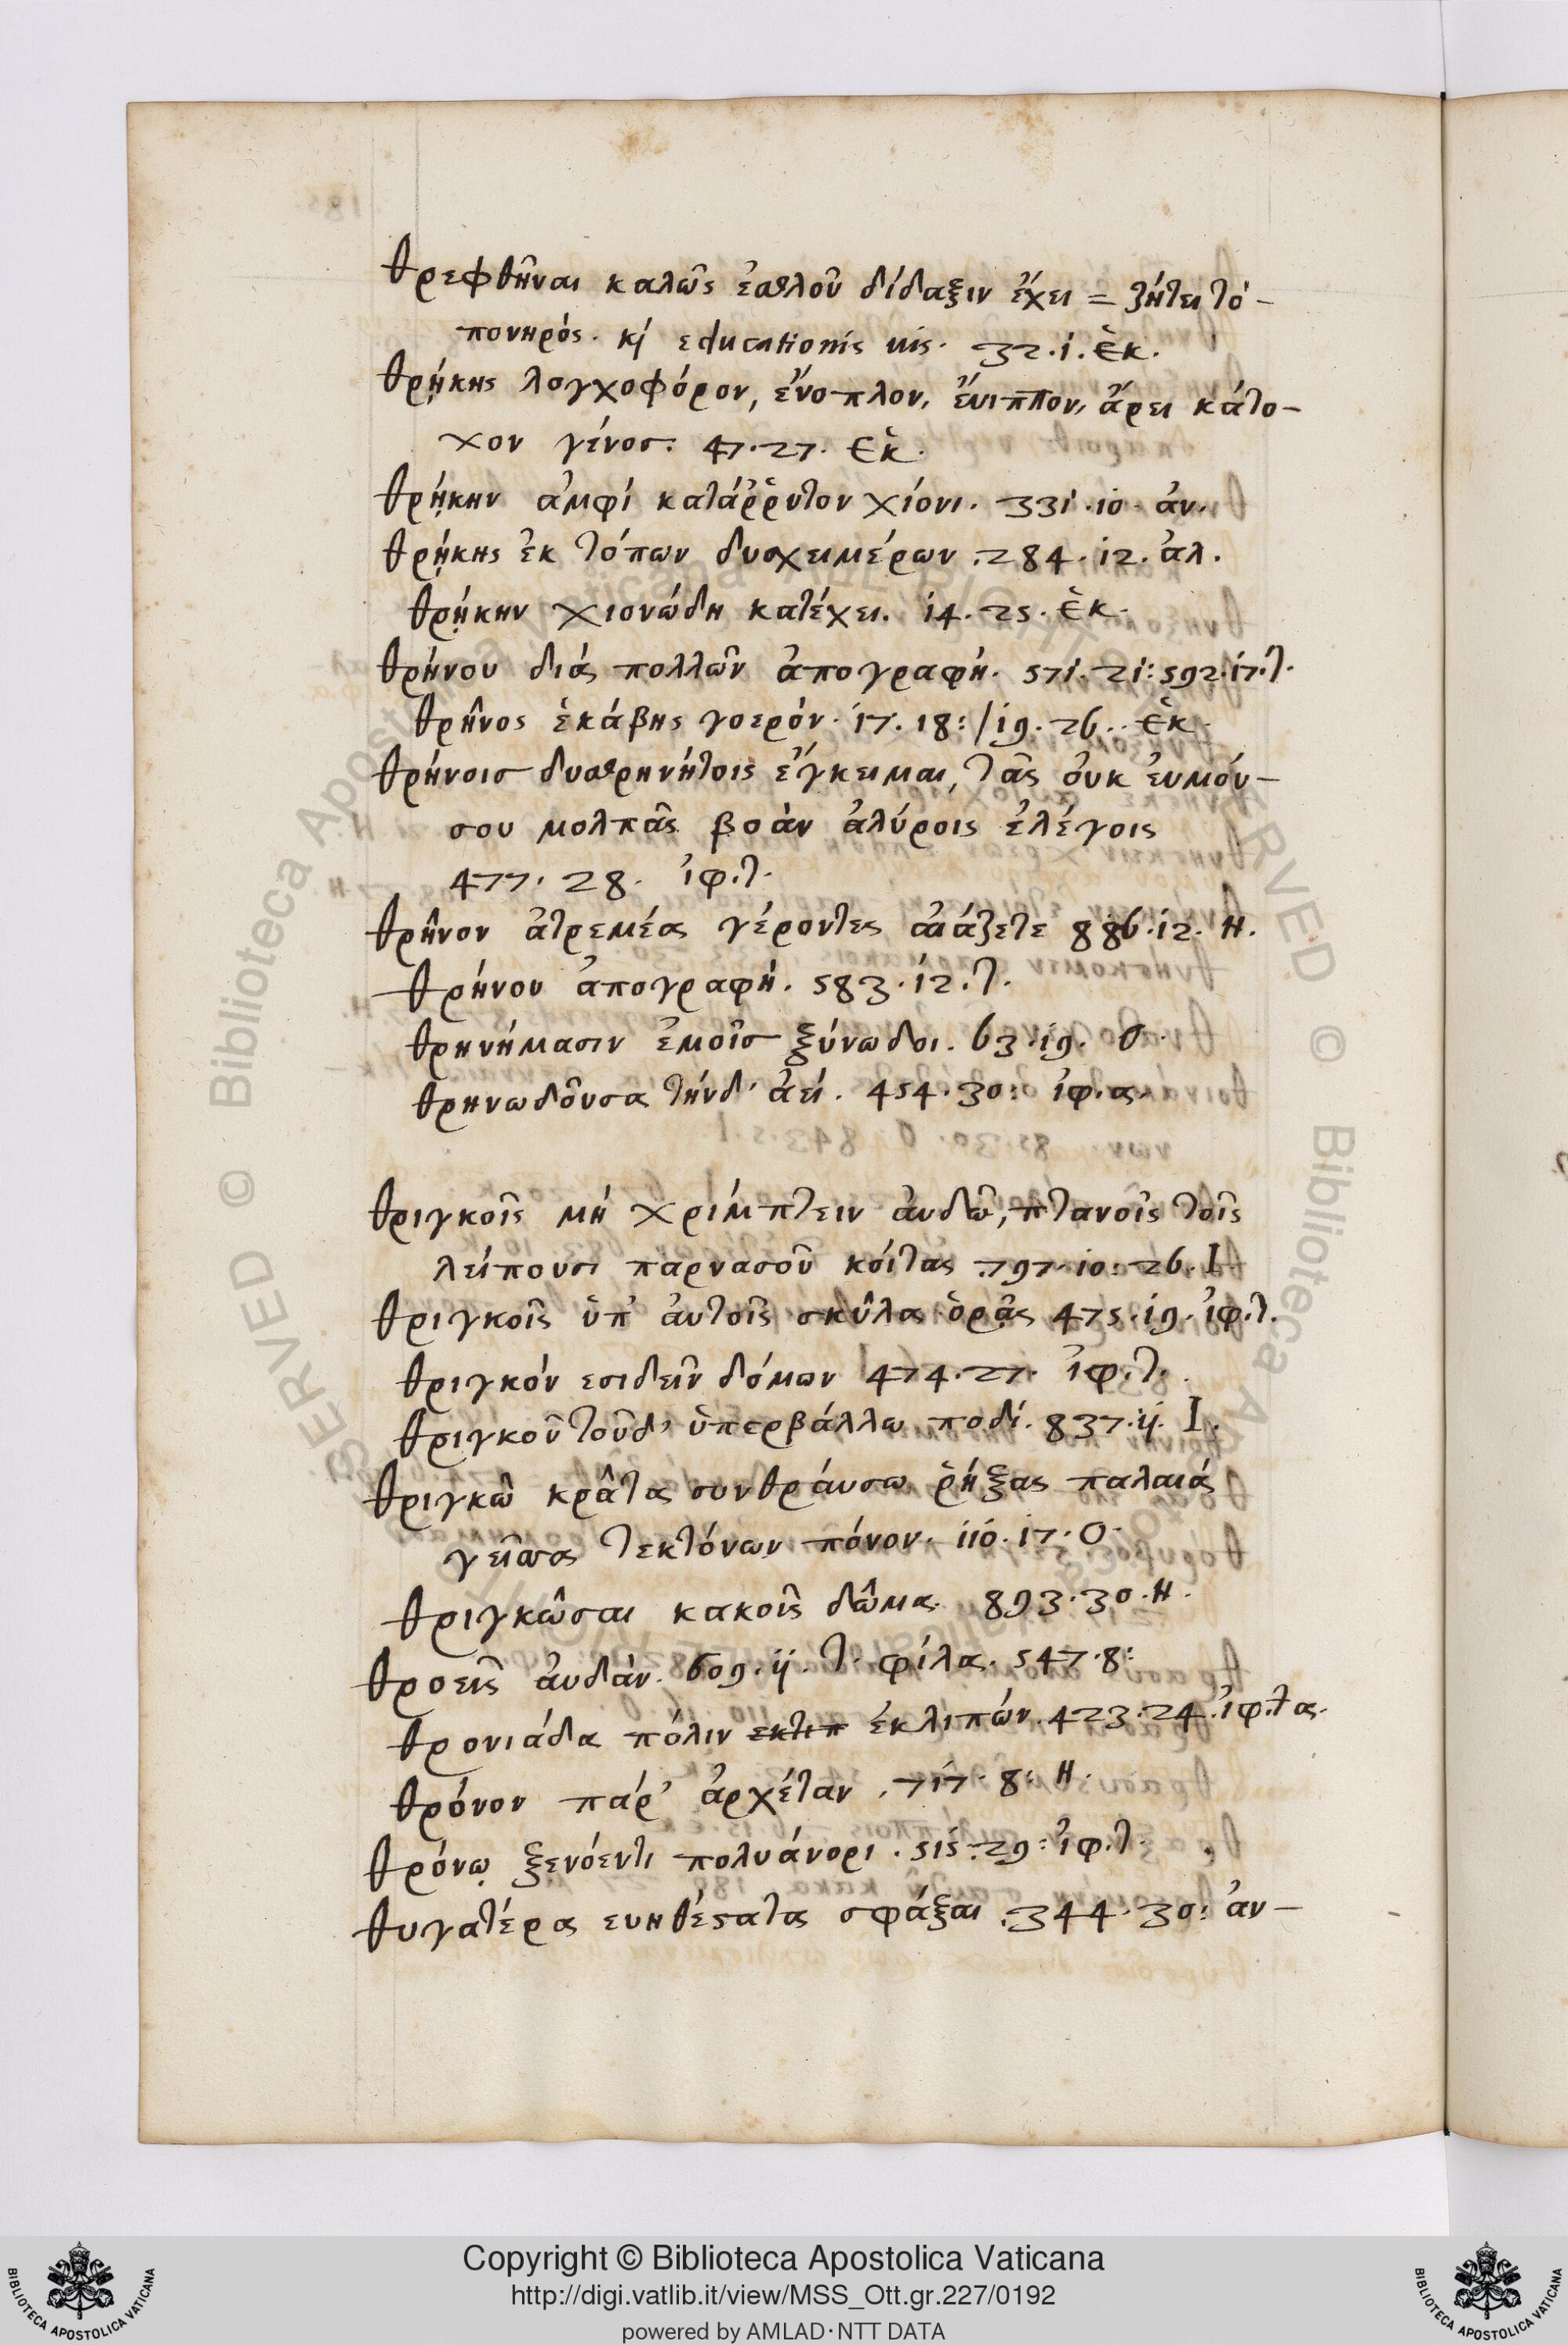 θρεφθῆναι καλῶς ἐσθλοῦ δίδαξιν ἔχει = ζήτει τὸ -
πονηρός. κὶ educationis uis. 32.i. Ἑκ.
θρῄκης λογχοφόρον, ἔνοπλον, ἔυιππον, ἄρει κάτο-
χον γένος: 47.27. Ἑκ.
θρῄκην ἀμφί κατάῤῥυτον χίονι. 331.10. ἀν.
θρῄκης ἐκ τόπων δυσχειμέρων. 284.12. ἀλ.
θρῄκην χιονώδη κατέχει. 14.25. Ἑκ.
θρήνου διά πολλῶν ἀπογραφή. 571.21: 592.17.τ.
θρῆνος ἑκάβης γοερόν. 17.18:/19.26.. Ἑκ.
θρήνοισ δυσθρηνήτοις ἔγκειμαι, τᾶς ὀυκ ἐυμόυ-
σου μολπᾶς βοὰν ἀλύροις ἐλέγοις
477. 28. ἰφ.τ.
θρῆνον ἀτρεμέα γέροντες ἀιάζετε 886.12. H.
θρήνου ἀπογραφή. 583.12.τ.
θρηνήμασιν ἐμοῖσ ξύνωδοι. 63.19. O.
θρηνωδοῦσα τήνδ' ἀεί. 454.30: ἰφ.α.
θριγκοῖς μή χρίμπτειν ἀυδῶ, πτανοῖς τοῖς
λείπουσι παρνασοῦ κοίτας .797.10: 26.I.
θριγκοῖς ὑπ' ἀυτοῖς σκῦλα ὁρᾷς 475.19. ἰφ.τ.
θριγκόν εσιδεῖν δόμων 474.27. ἰφ.τ.
θριγκοῦ τοῦδ' ὑπερβάλλω ποδί. 837.ij. I.
θριγκῶ κρᾶτα συνθράυσω ῥήξας παλαιά
γεῖσα τεκτόνων πόνον. 110.17.O.
θριγκῶσαι κακοῖς δῶμα. 893.30.H.
θροεῖς ἀυδὰν. 609.ij. τ. φίλα. 547.8:
θρονιάδα πόλιν εκλιπ ἐκλιπών. 423.24. ἰφ.τας.
θρόνον πάρ' ἀρχέταν .717.8: H.
θρόνῳ ξενόεντι πολυάνορι. 515.29: ἰφ.τ.
θυγατέρα ευηθέςατα σφάξαι .344.30: ἀν-
Copyright © Biblioteca Apostolica Vaticana
http://digi.vatlib.it/view/MSS_Ott.gr.227/0192
powered by AMLAD·NTT DATA